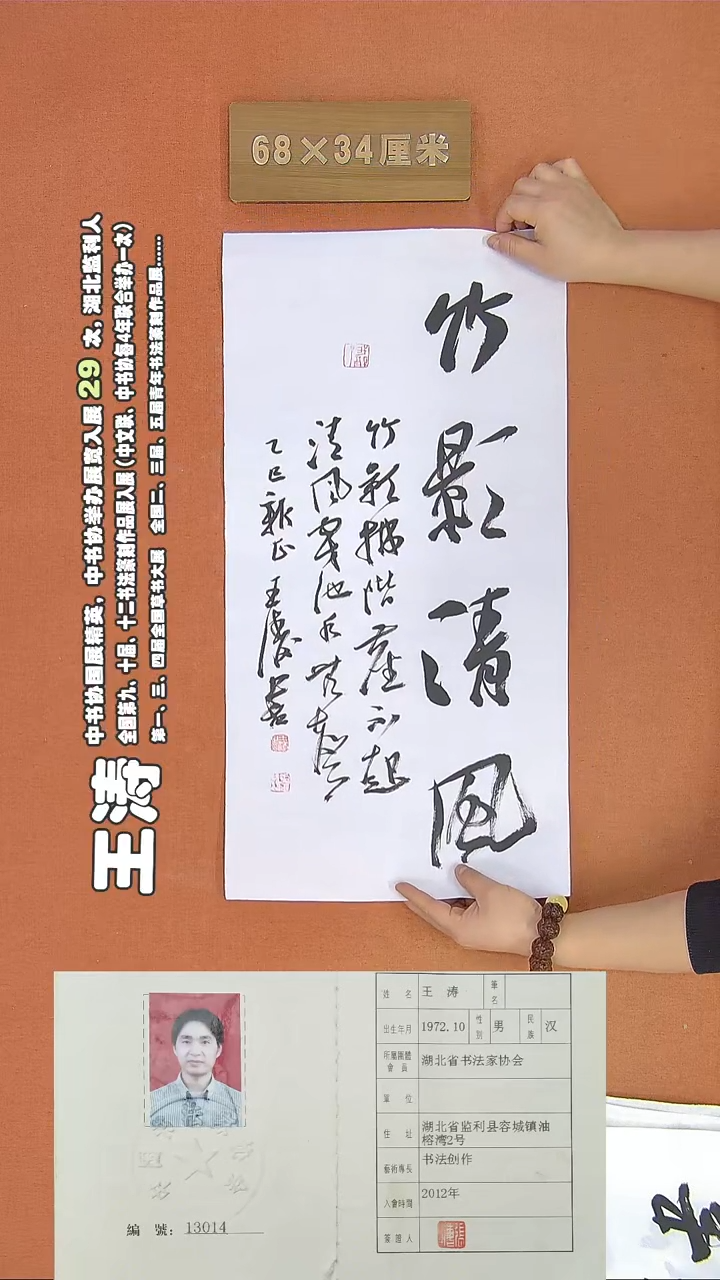 68×34厘米
竹影清风
竹影拂阶尘不起
清风穿池水无声
乙巳新正王涛书
王涛
中书协国展精英，中书协举办展赛入展29次，湖北监利人
全国第九、十届、十二书法篆刻作品展入展(中文联、中书协每4年联合举办一次)
第一、三、四届全国草书大展 全国二、三届、五届青年书法篆刻作品展……
編 號: 13014
姓 名 王 涛 筆名
出生年月 1972.10 性别 男 民族 汉
所屬團體會員 湖北省书法家协会
單 位
住 址 湖北省监利县容城镇油榕湾2号
藝術專長 书法创作
入會時間 2012年
簽證人